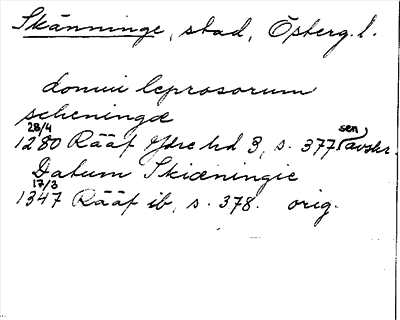 Skänninge, stad, Österg. l.
domui leprosorum
scheningæ
28/4 sen
1280 Rääf Ydre hd 3, s. 377 avskr.
Datum Skiæningie
17/3
1347 Rääf ib, s. 378. orig.